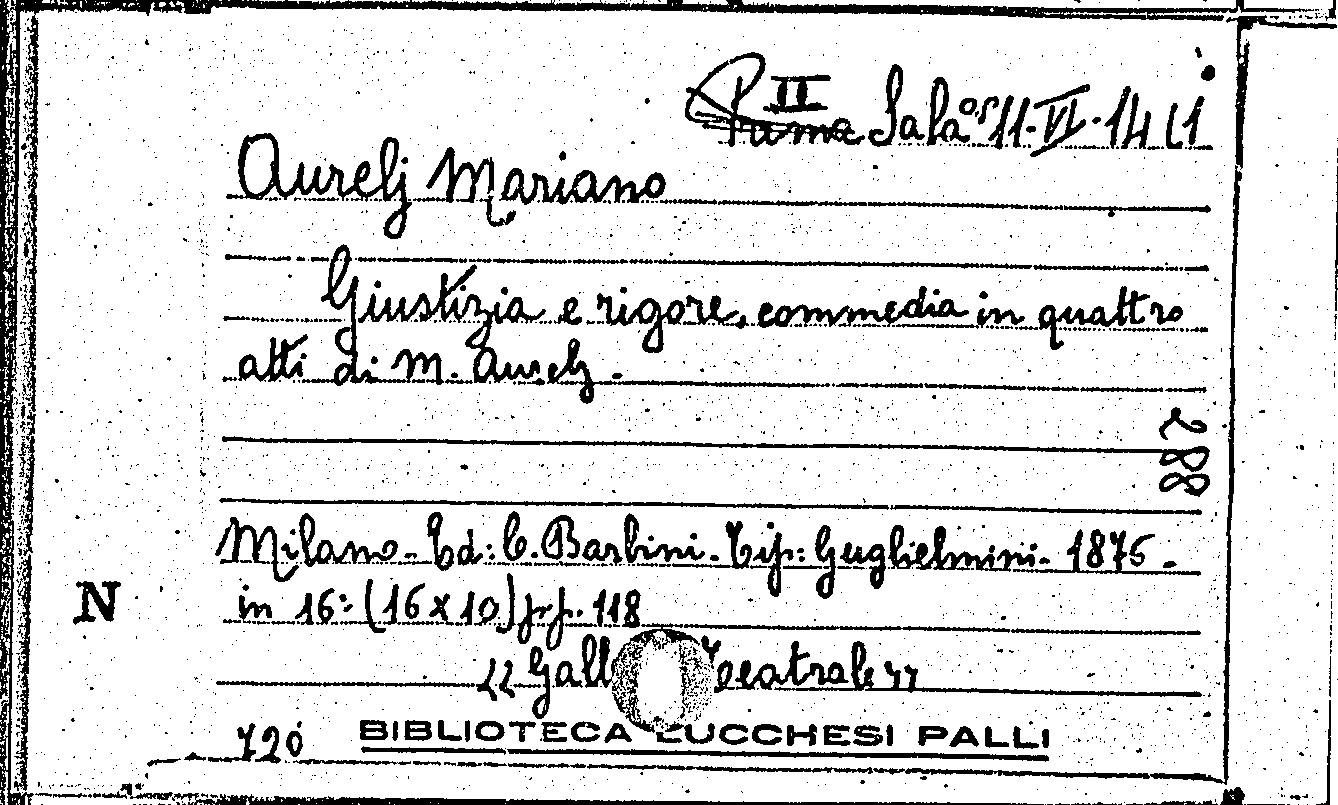 II
Prima Sala 11-VI-14 (1
Aurelj Mariano
Giustizia e rigore, commedia in quattro
atti di M. Aurelj.
288
Milano - Ed: C. Barbini - Tip: Guglielmini - 1875 -
N
in 16: (16 x 10) pp. 118
"Gall Teatrale"
720
BIBLIOTECA LUCCHESI PALLI